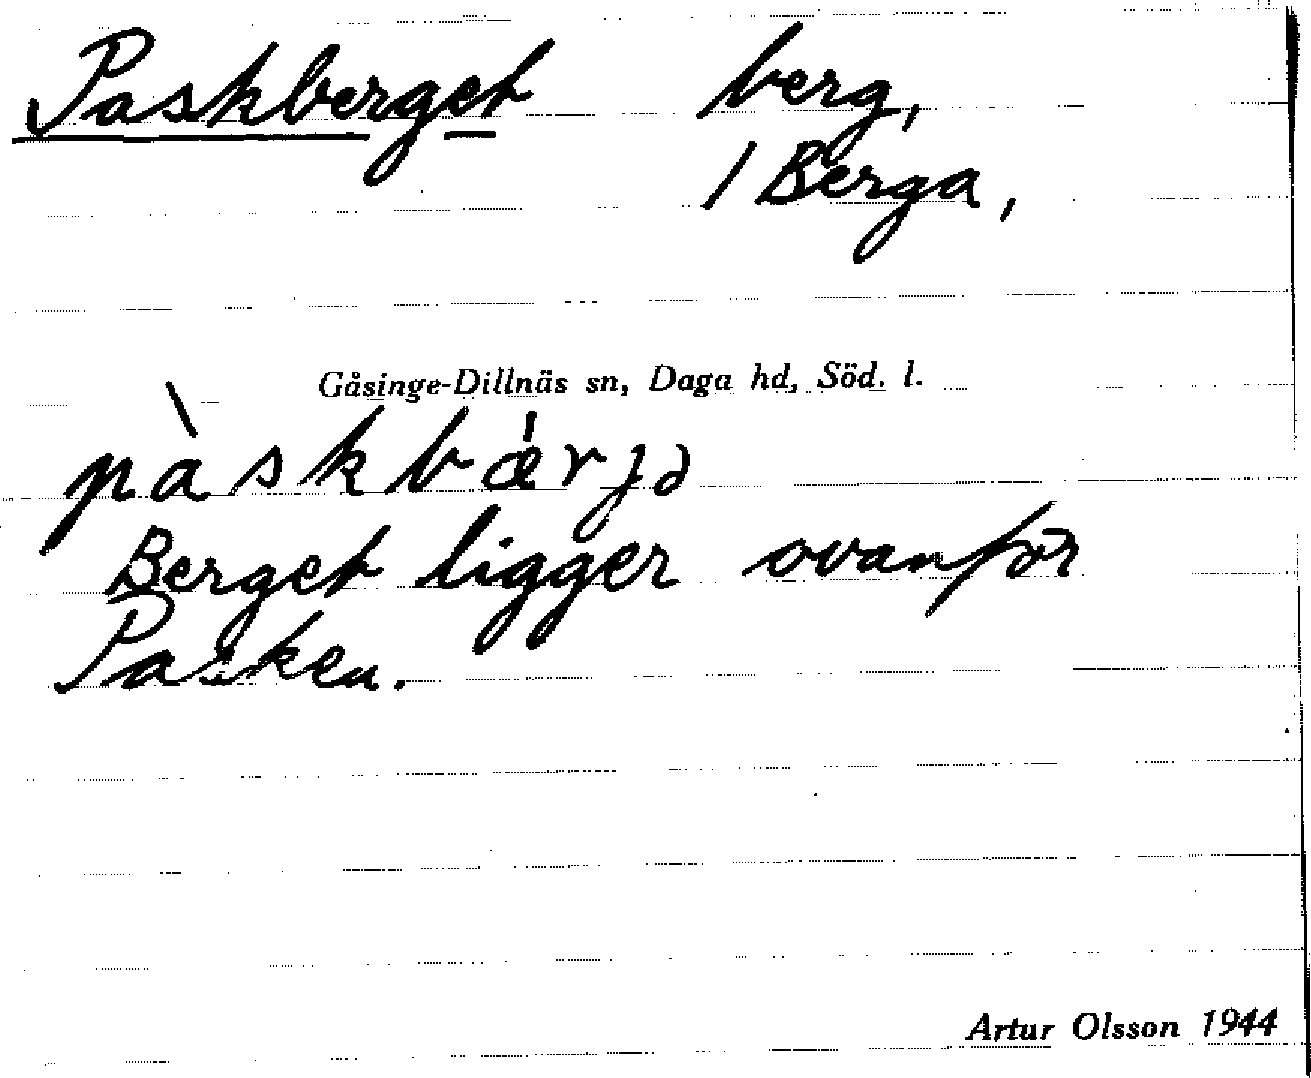 Paskberget berg,
/ Berga,
Gåsinge-Dillnäs sn, Daga hd, Söd. l.
pàskbǽrjə
Berget ligger ovanför
Pasken.
Artur Olsson 1944